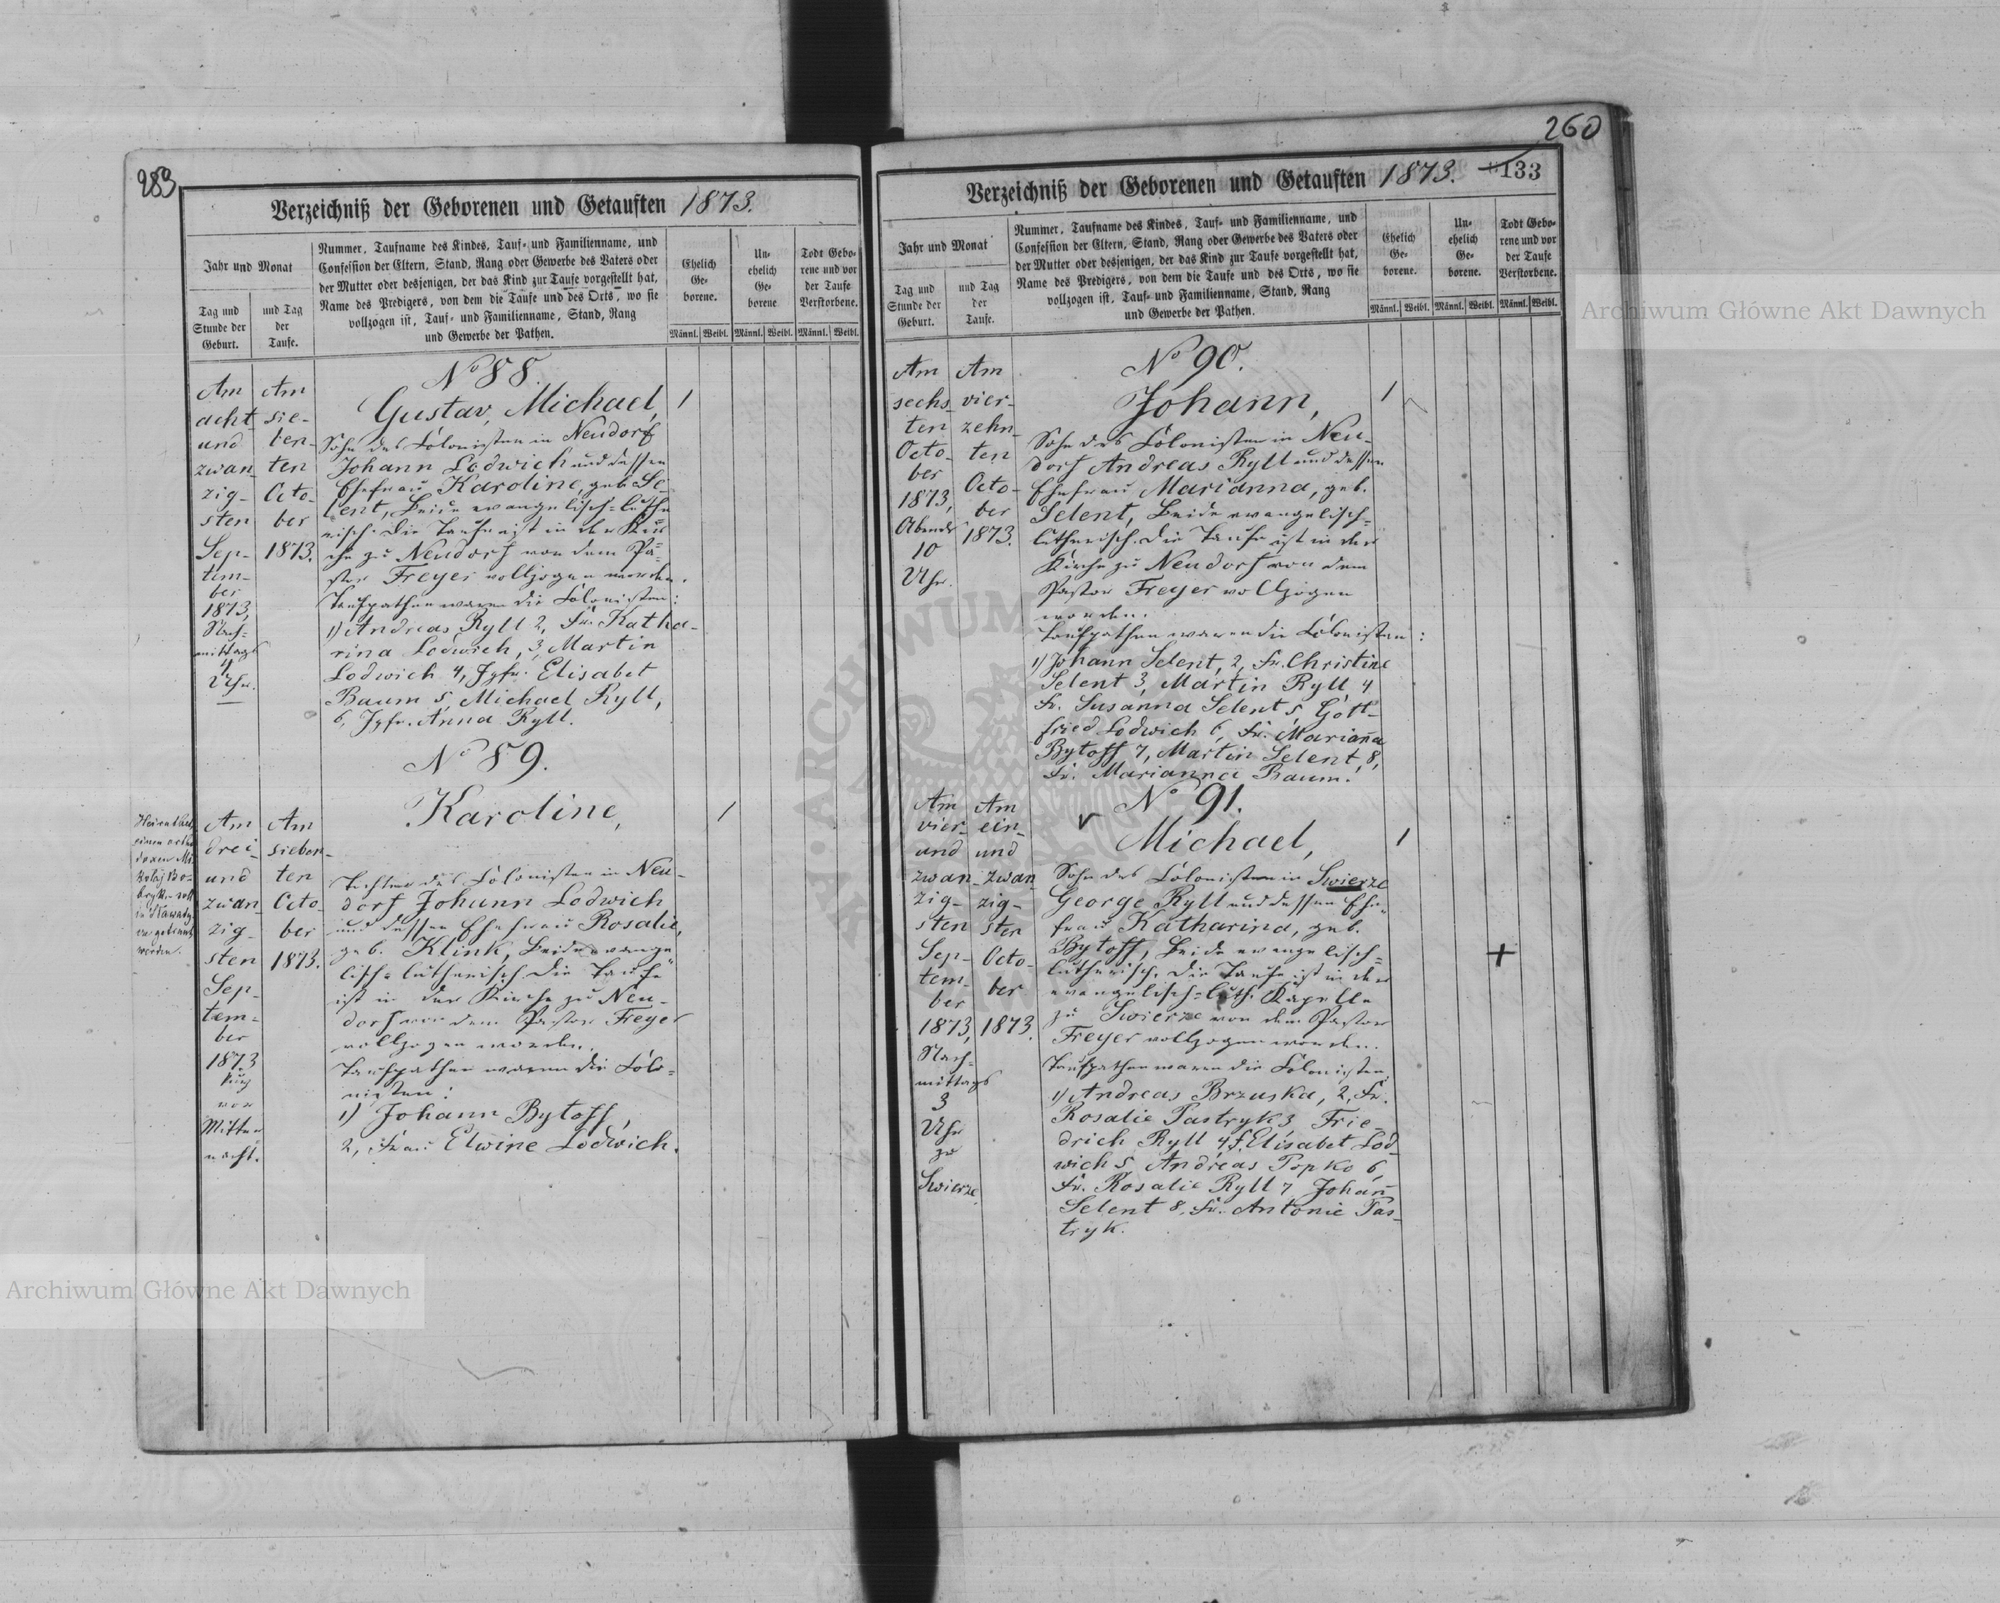 283
Verzeichniß der Geborenen und Getauften 1873.
Jahr und Monat
Tag und Stunde der Geburt.
und Tag der Taufe.
Nummer, Taufname des Kindes, Tauf- und Familienname, und
Confession der Eltern, Stand, Rang oder Gewerbe des Vaters oder
der Mutter oder desjenigen, der das Kind zur Taufe vorgestellt hat,
Name des Predigers, von dem die Taufe und des Orts, wo sie
vollzogen ist, Tauf- und Familienname, Stand, Rang
und Gewerbe der Pathen.
Ehelich Geborene.
Unehelich Geborene
Todt Geborene und vor der Taufe Verstorbene.
Männl. Weibl. Männl. Weibl. Männl. Weibl.
Am
acht
und
zwan
zig-
sten
Sep-
tem-
ber
1873,
Nach-
mittags
4
Uhr.
Am
sie-
ben-
ten
Octo-
ber
1873.
No 88.
Gustav, Michael, 1
Sohn des Colonisten in Neudorf
Johann Lodwich und dessen
Ehefrau Karoline, geb. Se-
lent, Beide evangelisch-luthe
risch. Die Taufe ist in der Kir
che zu Neudorf von dem Pa-
stor Freyer vollzogen worden.
Taufpathen waren die Colonisten:
1) Andreas Ryll 2, Fr. Katha-
rina Lodwich, 3, Martin
Lodwich 4, Jgfr. Elisabet
Baum 5, Michael Ryll,
6, Jgfr. Anna Ryll.
No 89.
Karoline, 1
Am
drei-
und
zwan
zig-
sten
Sep-
tem-
ber
1873
kurz
vor
Mitter
nacht.
Am
sieben-
ten
Octo
ber
1873.
Tochter des Colonisten in Neu-
dorf Johann Lodwich
und dessen Ehefrau Rosalie,
geb. Klink, Beide evange
lisch-lutherisch. Die Taufe
ist in der Kirche zu Neu-
dorf von dem Pastor Freyer
vollzogen worden.
Taufpathen waren die Colo-
nisten:
1) Johann Bytoff,
2, Frau Elwine Lodwich.
260
133
Verzeichniß der Geborenen und Getauften 1873.
Jahr und Monat
Tag und Stunde der Geburt.
und Tag der Taufe.
Nummer, Taufname des Kindes, Tauf- und Familienname, und
Confession der Eltern, Stand, Rang oder Gewerbe des Vaters oder
der Mutter oder desjenigen, der das Kind zur Taufe vorgestellt hat,
Name des Predigers, von dem die Taufe und des Orts, wo sie
vollzogen ist, Tauf- und Familienname, Stand, Rang
und Gewerbe der Pathen.
Ehelich Geborene.
Unehelich Geborene.
Todt Geborene und vor der Taufe Verstorbene.
Männl. Weibl. Männl. Weibl. Männl. Weibl.
Am
sechs
ten
Octo-
ber
1873,
Abends
10
Uhr.
Am
vier-
zehn-
ten
Octo-
ber
1873.
No 90.
Johann, 1
Sohn des Colonisten in Neu-
dorf Andreas Ryll und dessen
Ehefrau Marianna, geb.
Selent, Beide evangelisch-
lutherisch. Die Taufe ist in der
Kirche zu Neudorf von dem
Pastor Freyer vollzogen
worden.
Taufpathen waren die Colonisten:
1) Johann Selent, 2, Fr. Christine
Selent 3, Martin Ryll, 4
Fr. Susanna Selent 5, Gott-
fried Lodwich 6, Fr. Marianna
Bytoff 7, Martin Selent, 8,
Fr. Marianna Baum.
No 91.
Michael, 1
Am
vier-
und
zwan
zig-
sten
Sep-
tem-
ber
1873,
Nach-
mittags
3
Uhr
zu
Swierze
Am
ein-
und
zwan
zig-
sten
Octo-
ber
1873.
Sohn des Colonisten in Swierze
George Ryll und dessen Ehe-
frau Katharina, geb.
Bytoff, Beide evangelisch-
lutherisch. Die Taufe ist in der
evangelisch-luth. Kapelle
zu Swierze von dem Pastor
Freyer vollzogen worden.
Taufpathen waren die Colonisten
1) Andreas Brzuska, 2, Fr.
Rosalie Pastryk 3 Frie-
drich Ryll 4, f. Elisabet Lod-
wich 5 Andreas Popko 6
Fr. Rosalie Ryll 7 Johan̄
Selent 8, Fr. Antonie Pas-
tryk.
Archiwum Główne Akt Dawnych
Archiwum Główne Akt Dawnych